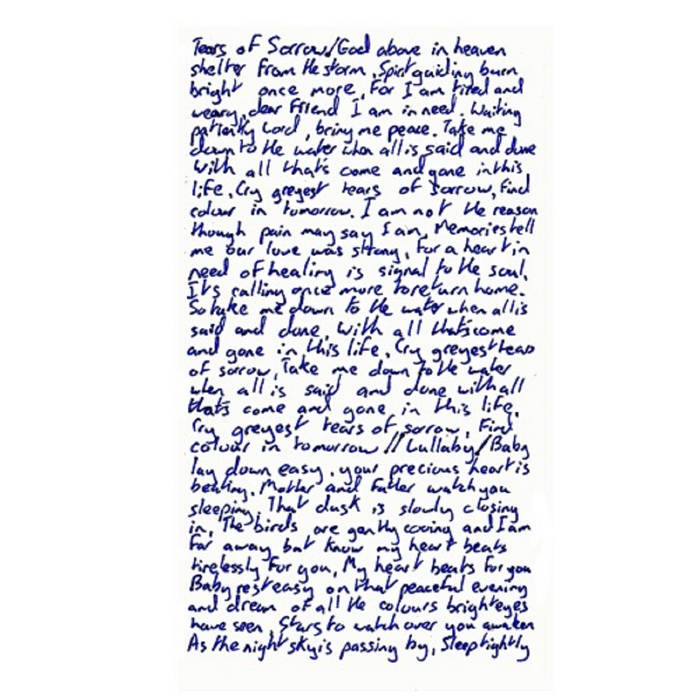 Tears of Sorrow/God above in heaven
shelter from the storm, Spirit guiding burn
bright once more, For I am tired and
weary, dear Friend I am in need. Waiting
patiently Lord, bring me peace. Take me
down to the water when all is said and done
With all thats come and gone in this
life, Cry greyest tears of sorrow, Find
colour in tomorrow. I am not the reason
though pain may say I am, Memories tell
me our love was strong, For a heart in
need of healing is signal to the soul,
It's calling once more to return home.
So take me down to the water when all is
said and done, with all thats come
and gone in this life, Cry greyest tears
of sorrow, Take me down to the water
when all is said and done with all
thats come and gone in this life,
Cry greyest tears of sorrow, Find
colour in tomorrow // Lullaby/Baby
lay down easy, your precious heart is
beating, Mother and Father watch you
sleeping, That dusk is slowly closing
in, The birds are gently cooing and I am
far away but know my heart beats
tirelessly for you, My heart beats for you
Baby rest easy on that peaceful evening
and dream of all the colours bright eyes
have seen, Stars to watch over you awaken
As the night sky is passing by, Sleep tightly